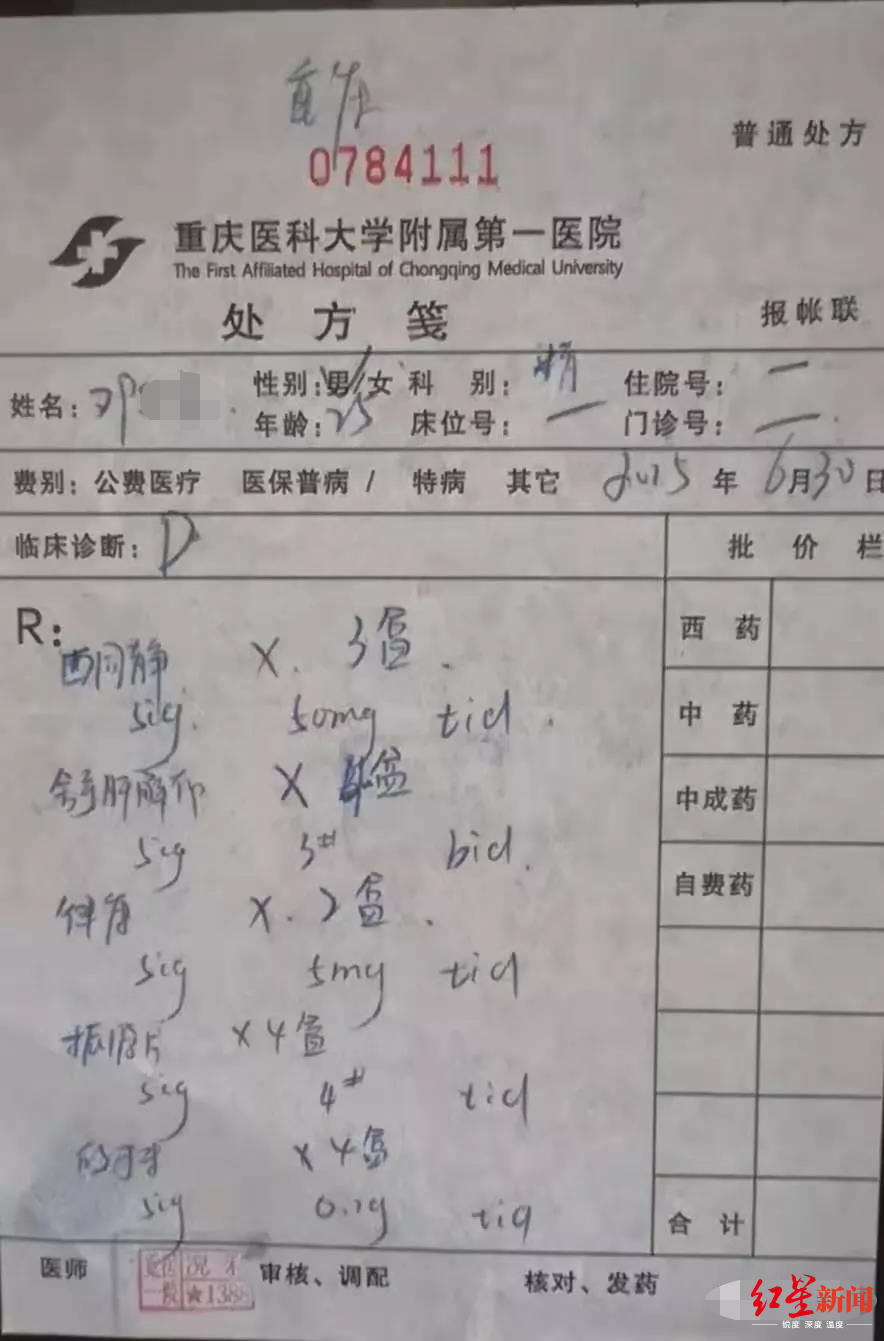 0784111
普通处方
重庆医科大学附属第一医院
The First Affiliated Hospital of Chongqing Medical University
处方笺
报帐联
姓名：邓
性别：男/女 科别：精 住院号：一
年龄：25 床位号：一 门诊号：一
费别：公费医疗 医保普病 / 特病 其它 2015年6月30日
临床诊断：D
批价栏
R：
西同静 X. 3盒.
sig. 50mg tid.
舒肝解郁 X 4盒
sig 3# bid.
X. 2盒.
sig 5mg tid
X 4盒
sig 4# tid
X 4盒
sig tid
西药
中药
中成药
自费药
合计
医师
★1388
审核、调配
核对、发药
红星新闻
锐度 深度 温度